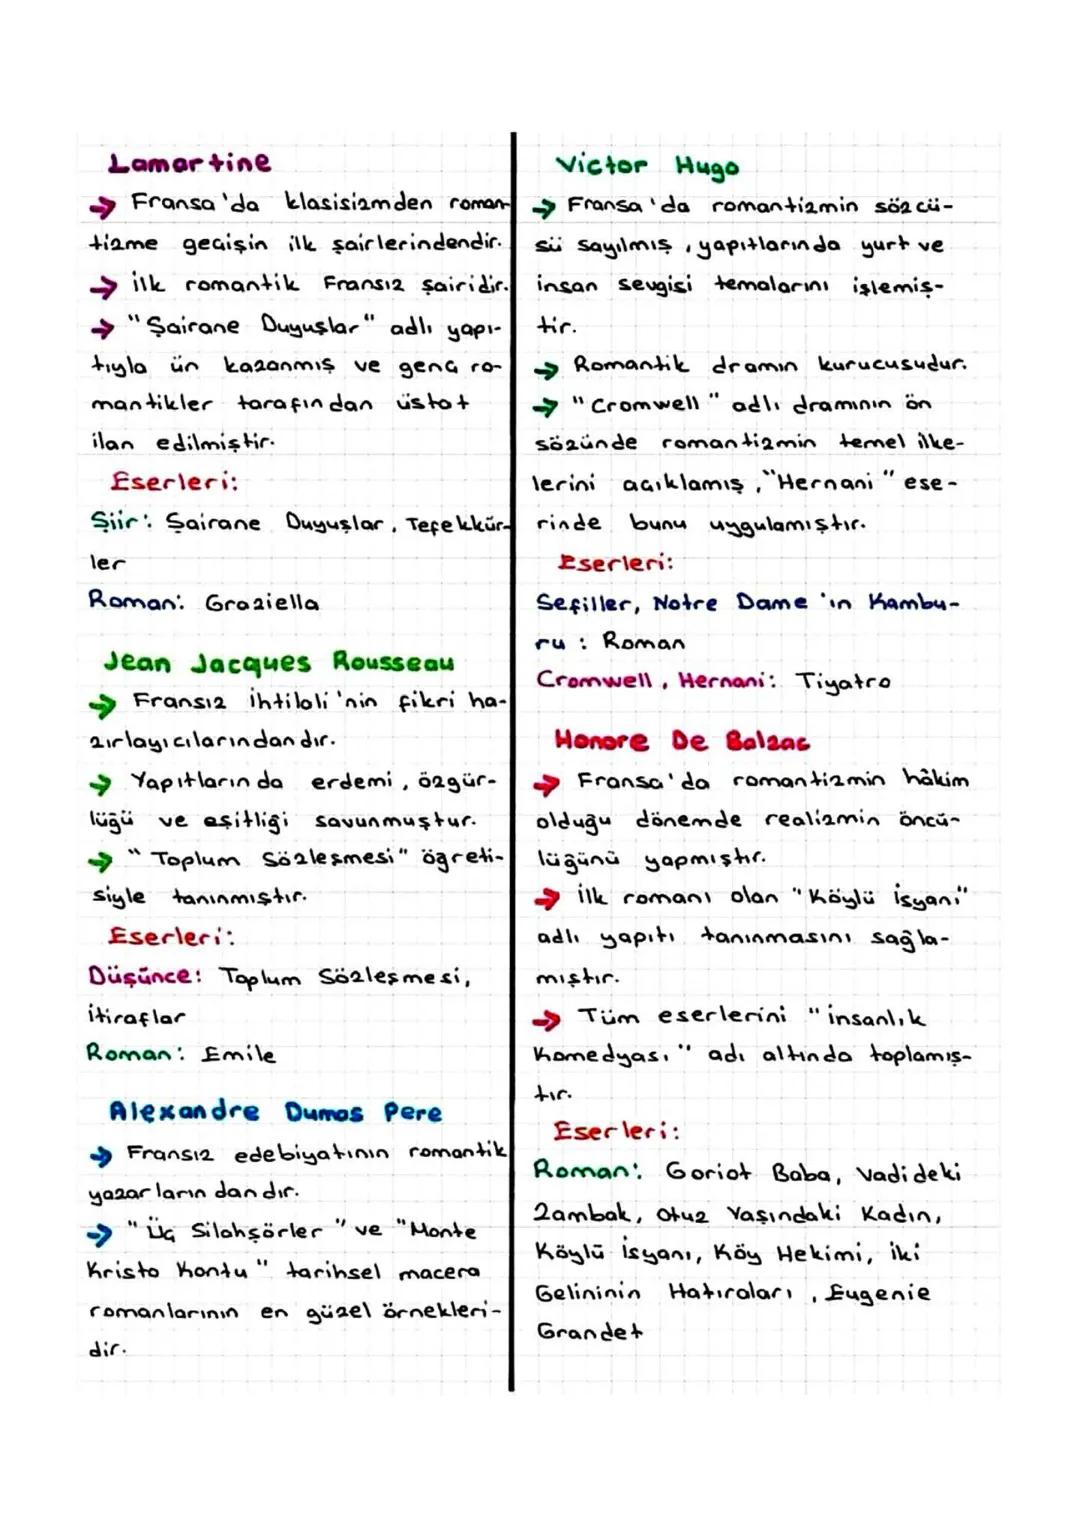 Lamartine
→ Fransa'da klasisizmden roman-
tizme geçişin ilk şairlerindendir.
→ ilk romantik Fransız şairidir.
→ "Şairane Duyuşlar" adlı yapı-
tıyla ün kazanmış ve genç ro-
mantikler tarafından üstat
ilan edilmiştir.
Eserleri:
Şiir: Şairane Duyuşlar, Tefekkür-
ler
Roman: Graziella
Jean Jacques Rousseau
→ Fransız ihtilali'nin fikri ha-
zırlayıcılarındandır.
→ Yapıtlarında erdemi, özgür-
lüğü ve eşitliği savunmuştur.
→ "Toplum Sözleşmesi" öğreti-
siyle tanınmıştır.
Eserleri:
Düşünce: Toplum Sözleşmesi,
itiraflar
Roman: Emile
Alexandre Dumas Pere
→ Fransız edebiyatının romantik
yazarlarındandır.
→ "Üç Silahşörler" ve "Monte
Kristo Kontu" tarihsel macera
romanlarının en güzel örnekleri-
dir.
Victor Hugo
→ Fransa'da romantizmin sözcü-
sü sayılmış, yapıtlarında yurt ve
insan sevgisi temalarını işlemiş-
tir.
→ Romantik dramın kurucusudur.
→ "Cromwell" adlı dramının ön
sözünde romantizmin temel ilke-
lerini açıklamış, "Hernani" ese-
rinde bunu uygulamıştır.
Eserleri:
Sefiller, Notre Dame'ın Kambu-
ru: Roman
Cromwell, Hernani: Tiyatro
Honore De Balzac
→ Fransa'da romantizmin hâkim
olduğu dönemde realizmin öncü-
lüğünü yapmıştır.
→ ilk romanı olan "Köylü isyanı"
adlı yapıtı tanınmasını sağla-
mıştır.
→ Tüm eserlerini "insanlık
Komedyası" adı altında toplamış-
tır.
Eserleri:
Roman: Goriot Baba, Vadideki
Zambak, Otuz Yaşındaki Kadın,
Köylü isyanı, Köy Hekimi, iki
Gelininin Hatıraları, Eugenie
Grandet